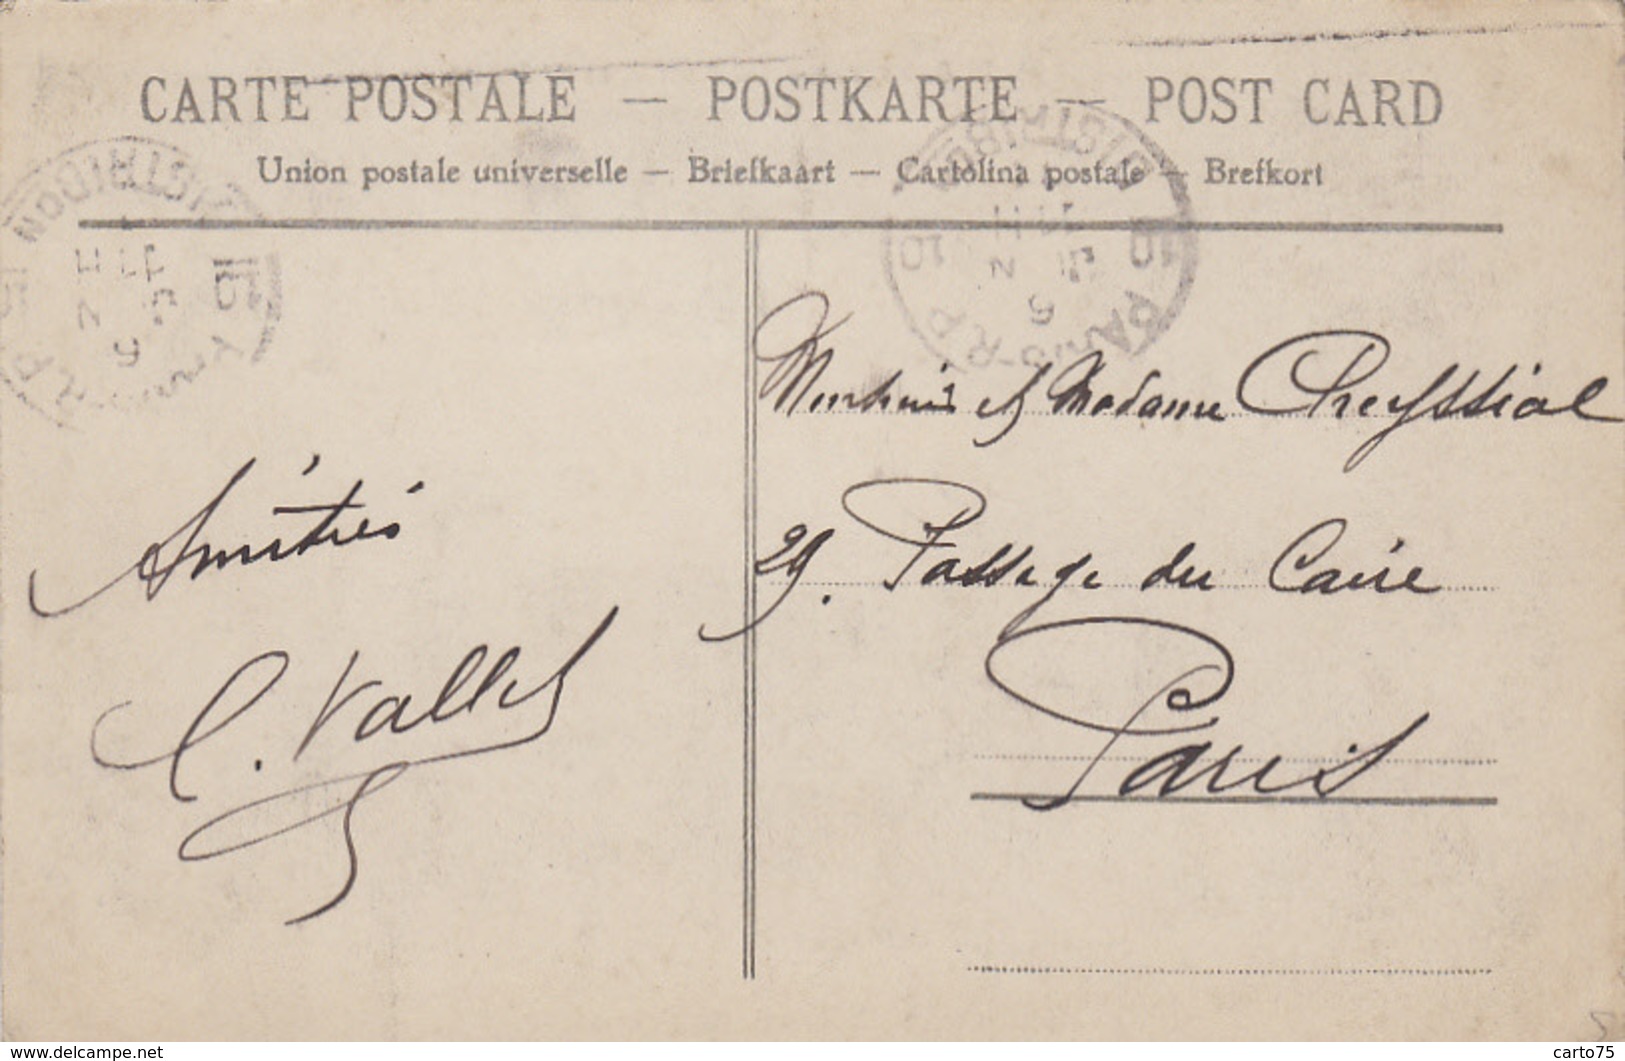 CARTE POSTALE — POSTKARTE — POST CARD
Union postale universelle — Briefkaart — Cartolina postale — Brefkort
DISTRIBUTION
DISTRIB
10 PARIS R.P. 10
Amitiés
C. Vallet
Monsieur et Madame Cheyssial
29. Passage du Caire
Paris
www.delcampe.net
carto75